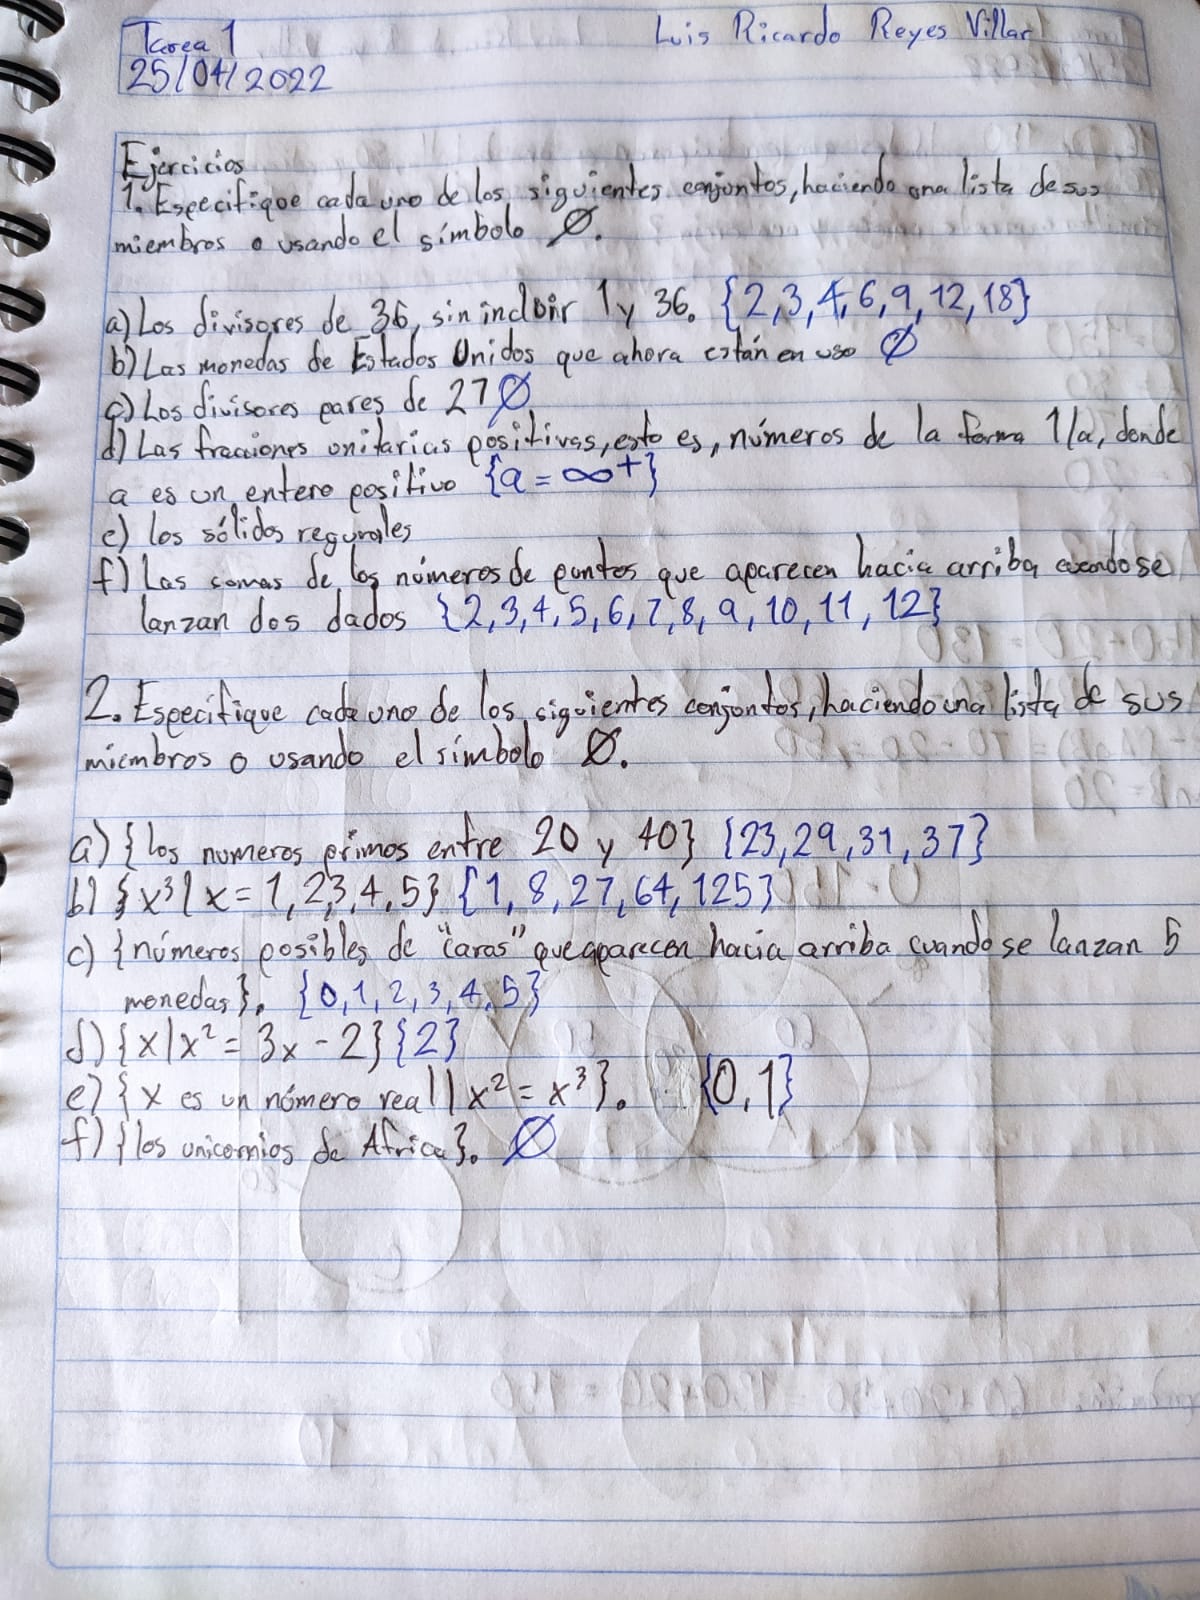 Tarea 1
Luis Ricardo Reyes Villar
25/04/2022
Ejercicios
1. Especifique cada uno de los siguientes conjuntos, haciendo una lista de sus
miembros o usando el símbolo ∅.
a) Los divisores de 36, sin incluir 1 y 36. {2,3,4,6,9,12,18}
b) Las monedas de Estados Unidos que ahora están en uso ∅
c) Los divisores pares de 27 ∅
d) Las fracciones unitarias positivas, esto es, números de la forma 1/a, donde
a es un entero positivo {a = ∞+}
e) los sólidos regurales
f) Las somas de los números de puntos que aparecen hacia arriba cuando se
lanzan dos dados {2,3,4,5,6,7,8,9,10,11,12}
2. Especifique cada uno de los siguientes conjuntos, haciendo una lista de sus
miembros o usando el símbolo ∅.
a) {los numeros primos entre 20 y 40} {23,29,31,37}
b) {x³|x=1,2,3,4,5} {1,8,27,64,125}
c) {números posibles de "caras" que aparecen hacia arriba cuando se lanzan 5
monedas}. {0,1,2,3,4,5}
d) {x|x² = 3x - 2} {2}
e) {x es un número real | x² = x³}. {0,1}
f) {los unicornios de Africa}. ∅